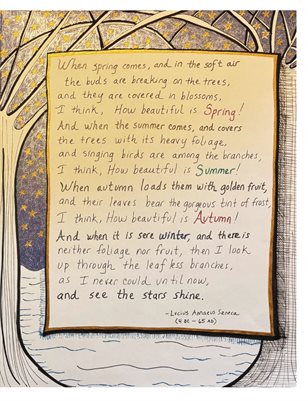 When spring comes, and in the soft air
the buds are breaking on the trees,
and they are covered in blossoms,
I think, How beautiful is Spring!
And when the summer comes, and covers
the trees with its heavy foliage,
and singing birds are among the branches,
I think, How beautiful is Summer!
When autumn loads them with golden fruit,
and their leaves bear the gorgeous tint of frost,
I think, How beautiful is Autumn!
And when it is sere winter, and there is
neither foliage nor fruit, then I look
up through the leafless branches,
as I never could until now,
and see the stars shine.
- Lucius Annaeus Seneca
(4 BC - 65 AD)